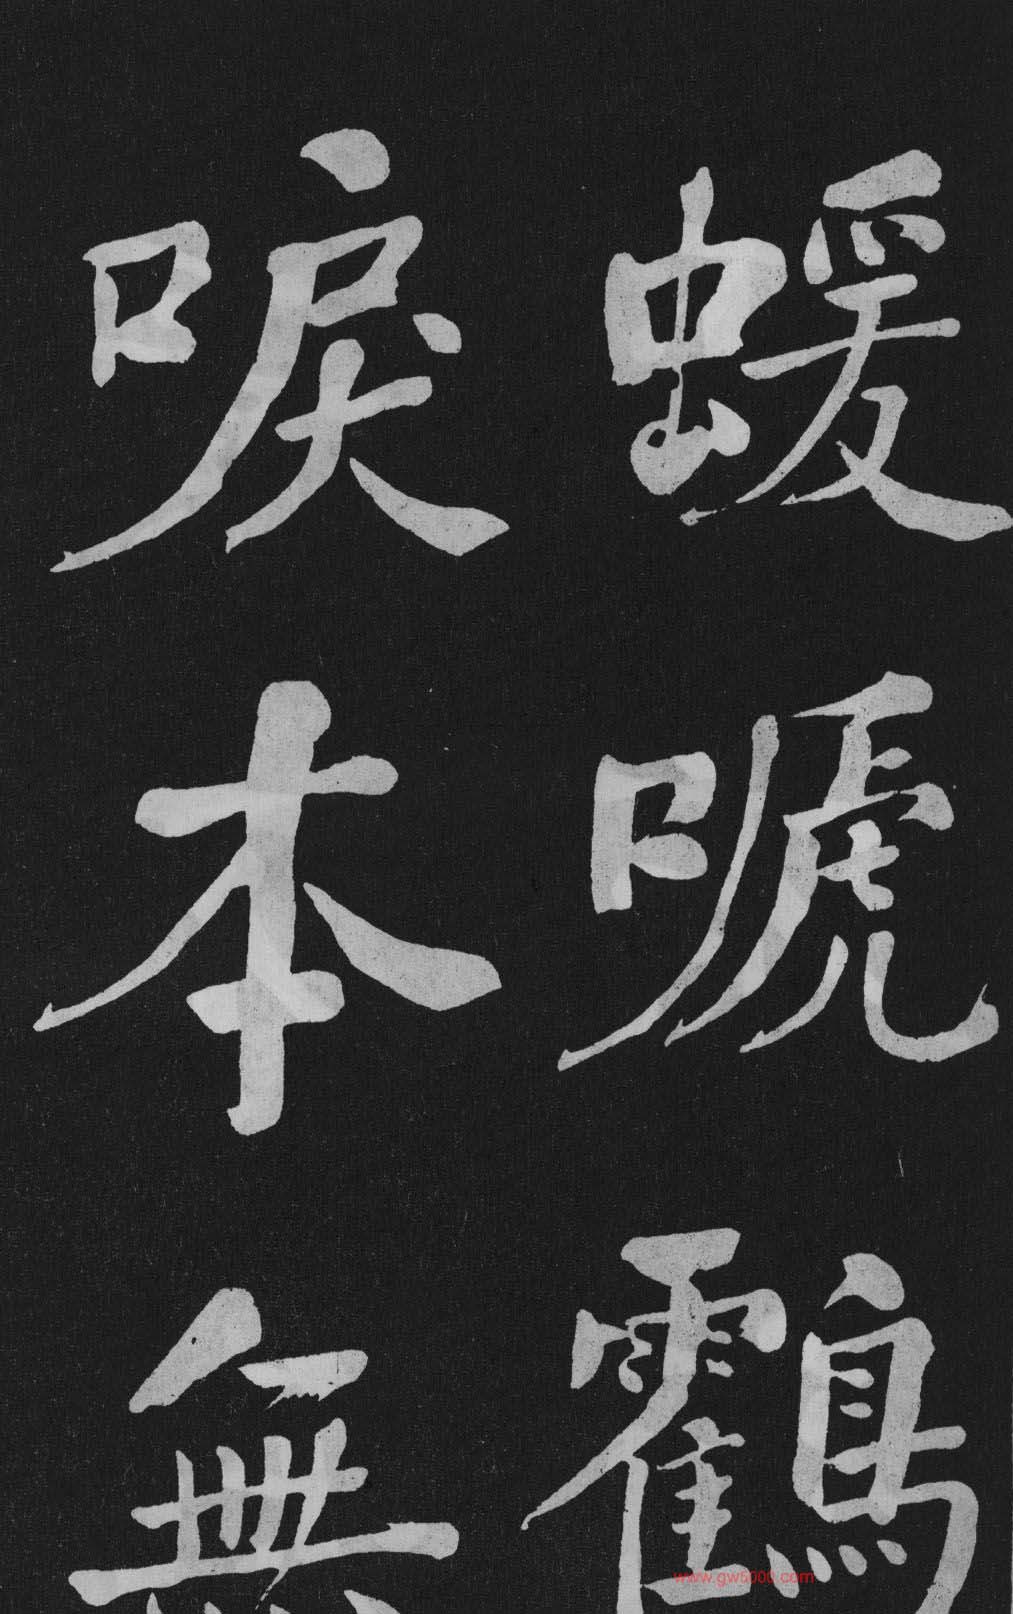 蝯嗁鸖
唳本無
www.gw6000.com